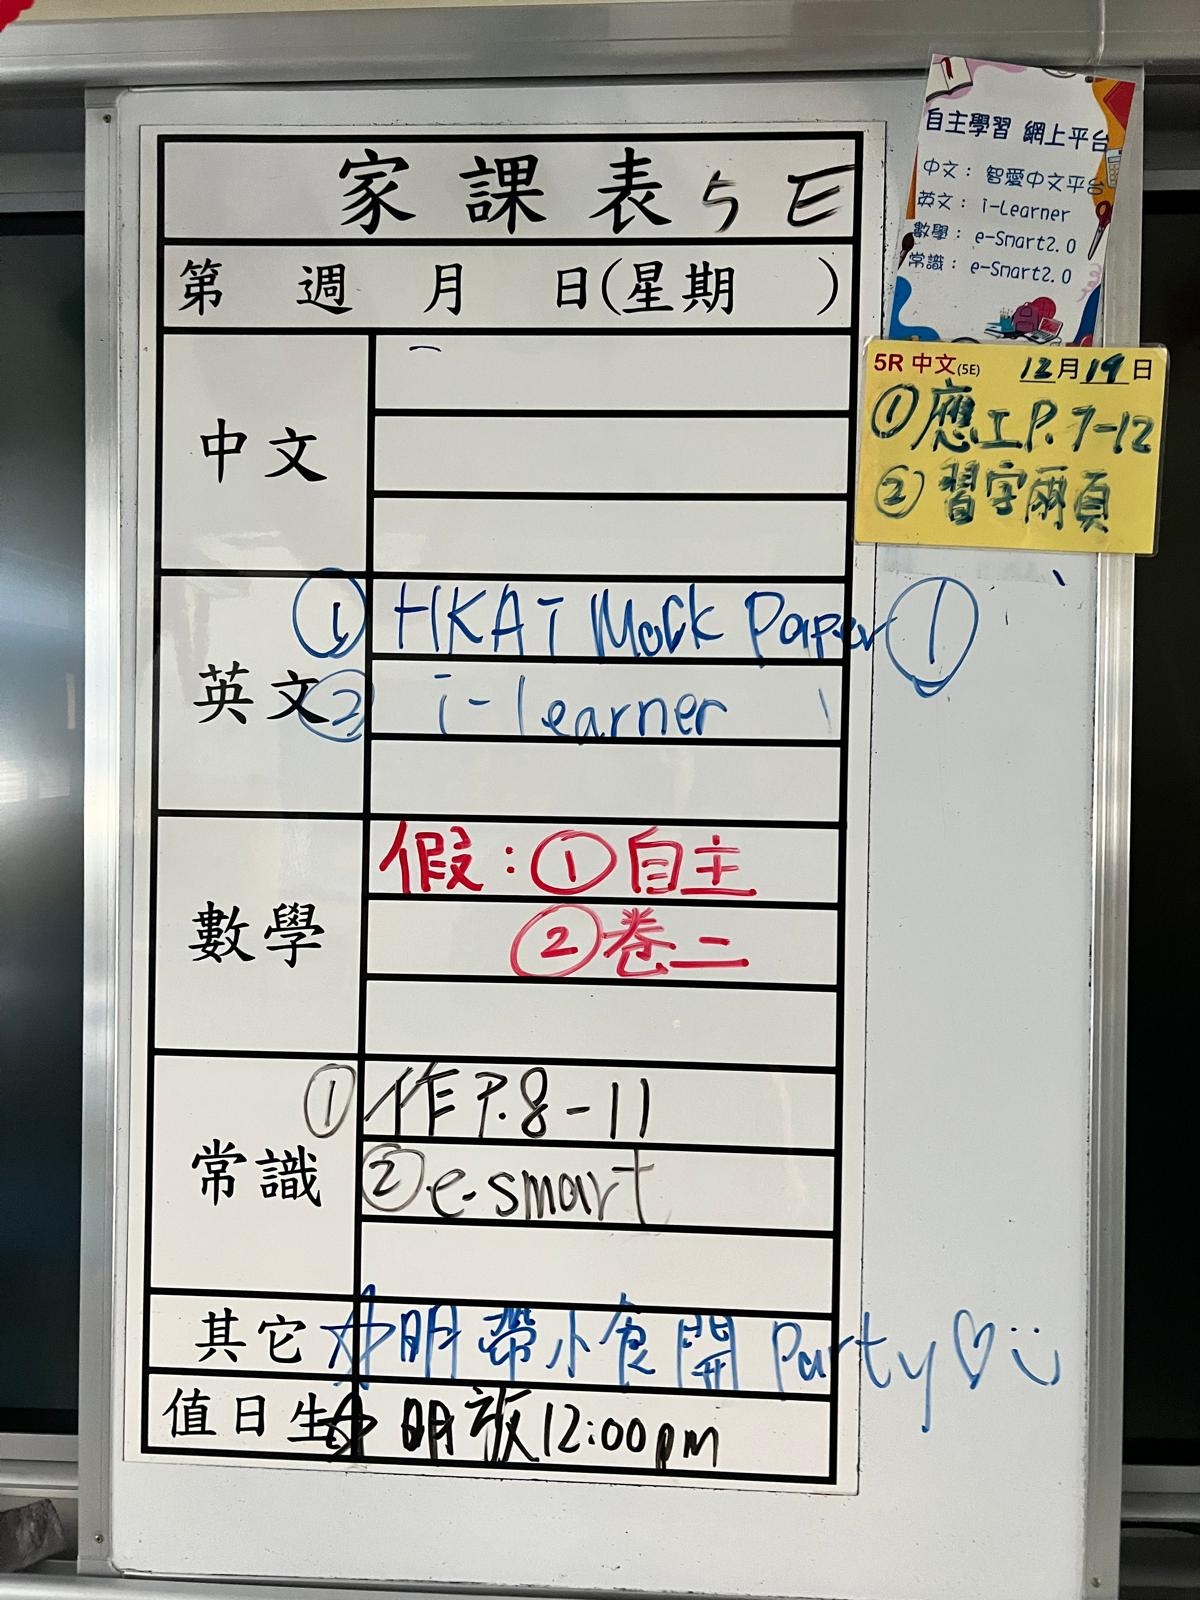 家課表 5E
第 週 月 日(星期 )
自主學習 網上平台
中文： 智愛中文平台
英文： i-Learner
數學： e-Smart2.0
常識： e-Smart2.0
5R 中文(5E) 12月19日
①應工P.7-12
②習字兩頁
中文
英文
① HKAT Mock Paper ①
② i-learner
數學
假：①自主
②卷二
常識
① 作P.8-11
②e-smart
其它 ☆明帶小食開 Party♡
值日生 ☆ 明放12:00pm